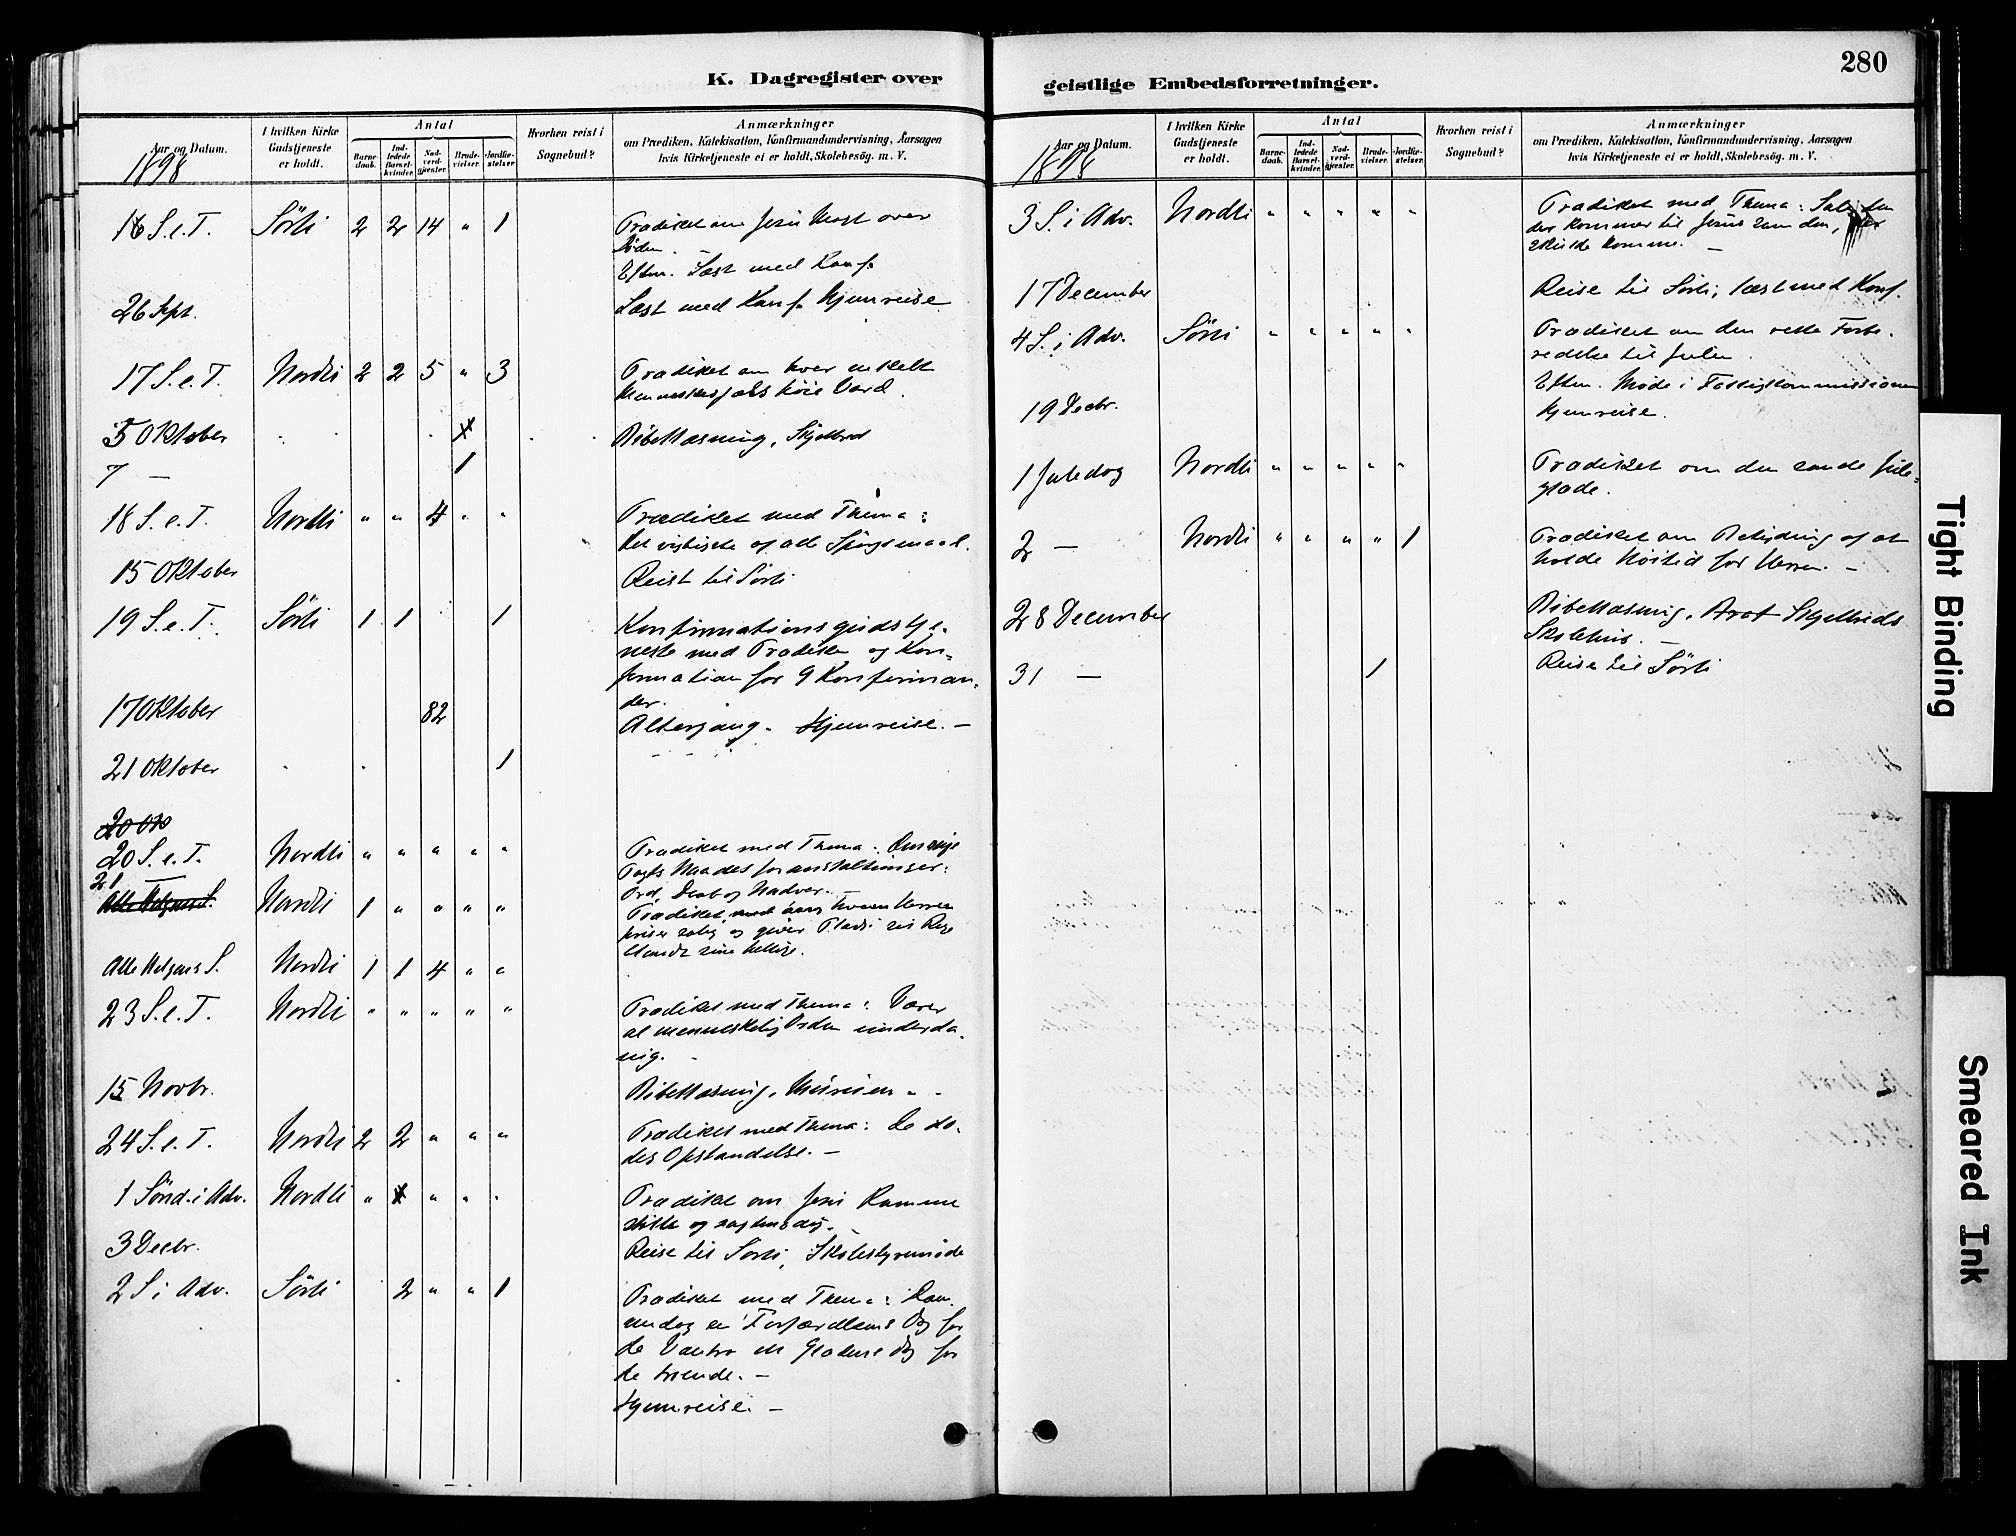 K. Dagregister over
Aar og Datum.
I hvilken Kirke Gudstjeneste er holdt.
Antal
Barnedaab.
Indledede Barselkvinder.
Nadverdgjester.
Brudevielser.
Jordfæstelser.
Hvorhen reist i Sognebud?
Anmærkninger
om Prædiken, Katekisation, Konfirmandundervisning, Aarsagen
hvis Kirketjeneste ei er holdt, Skolebesøg. m. V.
1898
16 S. e. T. Sörli 2 2 14 " 1 Prædiket om Jesu Magt over
Döden
Eftm. Læst med Konf.
26 Spt. Læst med Konf. Hjemreise
17 S. e. T. Nordli 2 2 5 " 3 Prædiket om hver enkelt
Menneskesjæls höie Værd.
5 Oktober Bibellæsning, Skjelbred
7 — 1
18 S. e. T. Nordli " " 4 " " Prædiket med Thema:
Det vigtigste af alle Spörgsmaal.
15 Oktober Reist til Sörli
19 S. e. T. Sörli 1 1 1 Konfirmationsgudstje-
neste med Prædiken og Kon-
firmation for 9 Konfirman-
der.
17 Oktober 82 Altergang. Hjemreise. —
21 Oktober 1
20 Ok
20 S. e. T. Nordli " " " " " Prædiket med Thema:
Naadesforanstaltninger:
Ord, Daab og Nadver.
21 —
Alle Helgens S. Nordli 1 " " " " Prædiket, med hvem Herren
priser salig og giver Plads i sit Rige
sine hellige.
Alle Helgens S. Nordli 1 1 4 " "
23 S. e. T. Nordli " " " " " Prædiket med Thema: Værer
al menneskelig Orden underda-
nig.
15 Novbr. Bibellæsning,
24 S. e. T. Nordli 2 2 " " " Prædiket med Thema: De dö-
des Opstandelse. —
1 Sönd. i Adv. Nordli " " " " Prædiket om Jesu Komme
stille og sagtmodig.
3 Decbr. Reise til Sörli, Skolestyremöde
2 S i Adv. Sörli 2 " " 1 Prædiket med Thema: Dom-
medag en Forfærdelsens Dag for
de Vantro en Glædens Dag for
de troende. —
Hjemreise. —
geistlige Embedsforretninger.
280
Aar og Datum.
I hvilken Kirke Gudstjeneste er holdt.
Antal
Barnedaab.
Indledede Barselkvinder.
Nadverdgjester.
Brudevielser.
Jordfæstelser.
Hvorhen reist i Sognebud?
Anmærkninger
om Prædiken, Katekisation, Konfirmandundervisning, Aarsagen
hvis Kirketjeneste ei er holdt, Skolebesøg. m. V.
1898
3 S. i Adv. Nordli " " " " " Prædiket med Thema: Salig den
der kommer til Jesus som den, der
skulde komme. —
17 December Reise til Sörli, læst med Konf.
4 S. i Adv. Sörli " " " " " Prædiket om den rette Forbe-
redelse til Julen.
Eftm. Möde i Fattigkommissionen
19 Decbr. Hjemreise.
1 Juledag Nordli " " " " " Prædiket om den sande Jule-
glæde.
2 — Nordli " " " " 1 Prædiket om Betydning af at
holde Höitid for Herren. —
28 December Bibellæsning, Skjelbreds
Skolehus. —
31 — 1 Reise til Sörli
Tight Binding
Smeared Ink